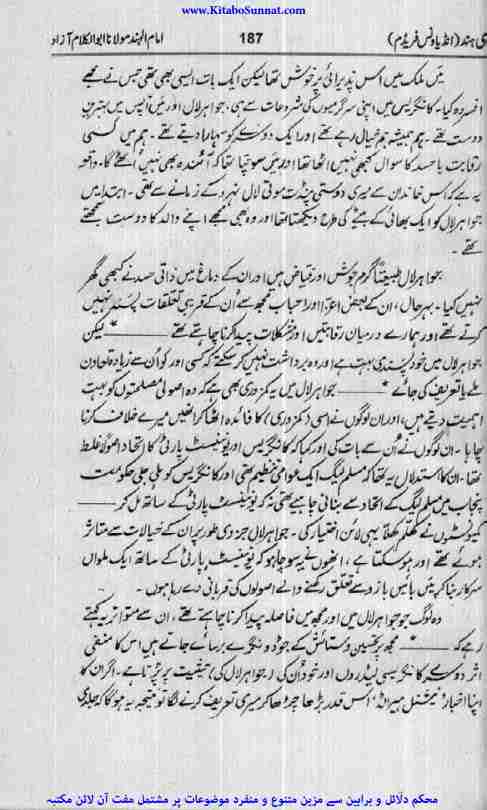 www.KitaboSunnat.com
ی ہند (انڈیا ونس فریڈم)
187
امام الہند مولانا ابوالکلام آزاد
میں ملک میں اس پذیرائی پر خوش تھا لیکن ایک بات ایسی بھی تھی جس نے مجھے
افسردہ کیا۔ کانگریس میں اپنی سرگرمیوں کی شروعات سے ہی، جواہر لال اور میں آپس میں بہترین
دوست تھے۔ ہم ہمیشہ ہم خیال رہے تھے اور ایک دوسرے کو سہارا دیتے تھے۔ ہم میں کسی
رقابت یا حسد کا سوال کبھی نہیں اٹھا تھا اور میں سوچتا تھا کہ آئندہ بھی نہیں اٹھے گا۔ واقعہ
یہ ہے کہ اس خاندان سے میری دوستی پنڈت موتی لال نہرو کے زمانے سے تھی۔ ابتدا میں
جواہر لال کو ایک بھائی کے بیٹے کی طرح دیکھتا تھا اور وہ بھی مجھے اپنے والد کا دوست سمجھتے
تھے۔
جواہر لال طبیعتاً گرم جوش اور فیاض ہیں اور ان کے دماغ میں ذاتی حسد نے کبھی گھر
نہیں کیا۔ بہرحال، ان کے بعض اعزا اور احباب مجھ سے ان کے قریبی تعلقات پسند نہیں
کرتے تھے اور ہمارے درمیان رقابتیں اور مشکلات پیدا کرنا چاہتے تھے ——* لیکن
جواہر لال میں خود پسندی بہت ہے اور وہ برداشت نہیں کر سکتے کہ کسی اور کو ان سے زیادہ تعاون
ملے یا تعریف کی جائے *—— جواہر لال میں یہ کمزوری بھی ہے کہ وہ اصولی مصلحتوں کو بہت
اہمیت دیتے ہیں، اور ان لوگوں نے اسی (کمزوری) کا فائدہ اٹھا کر انہیں میرے خلاف کرنا
چاہا۔ ان لوگوں نے ان سے بات کی اور کہا کہ کانگریس اور یونینسٹ پارٹی کا اتحاد اصولاً غلط
تھا۔ ان کا استدلال یہ تھا کہ مسلم لیگ ایک عوامی تنظیم تھی اور کانگریس کو ملی جلی حکومت
پنجاب میں مسلم لیگ کے اتحاد سے بنانی چاہیے تھی نہ کہ یونینسٹ پارٹی کے ساتھ مل کر ——
کمیونسٹوں نے کھلم کھلا یہی لائن اختیار کی۔ جواہر لال جزوی طور پر ان کے خیالات سے متاثر
ہوئے تھے اور ہو سکتا ہے، انھوں نے یہ سوچا ہو کہ یونینسٹ پارٹی کے ساتھ ایک ملواں
سرکار بنا کر میں بائیں بازو سے تعلق رکھنے والے اصولوں کی قربانی دے رہا ہوں۔
وہ لوگ جو جواہر لال میں اور مجھ میں فاصلہ پیدا کرنا چاہتے تھے، ان سے متواتر یہ کہتے
رہے کہ ——* مجھ پر تحسین و ستائش کے جو ڈونگرے برسائے جاتے ہیں اس کا منفی
اثر دوسرے کانگریسی لیڈروں اور خود ان کی (جواہر لال کی) حیثیت پر پڑتا ہے۔ اگر ان کا
اپنا اخبار نیشنل ہیرالڈ، اس قدر بڑھا چڑھا کر میری تعریف کرنے لگا تو نتیجہ یہ ہوگا کہ جلدی
محکم دلائل و براہین سے مزین متنوع و منفرد موضوعات پر مشتمل مفت آن لائن مکتبہ